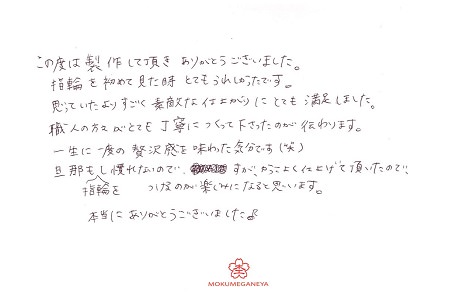 この度は製作して頂き ありがとうございました。
指輪を初めて見た時 とてもうれしかったです。
思っていたよりすごく素敵な仕上がりにとても満足しました。
職人の方々がとても丁寧につくって下さったのが伝わります。
一生に一度の贅沢感を味わた気分です(笑)
旦那もし慣れないので、すがかっこよく仕上げて頂いたので、
指輪を つけるのが楽しみになると思います。
本当に ありがとうございました♪
MOKUMEGANEYA